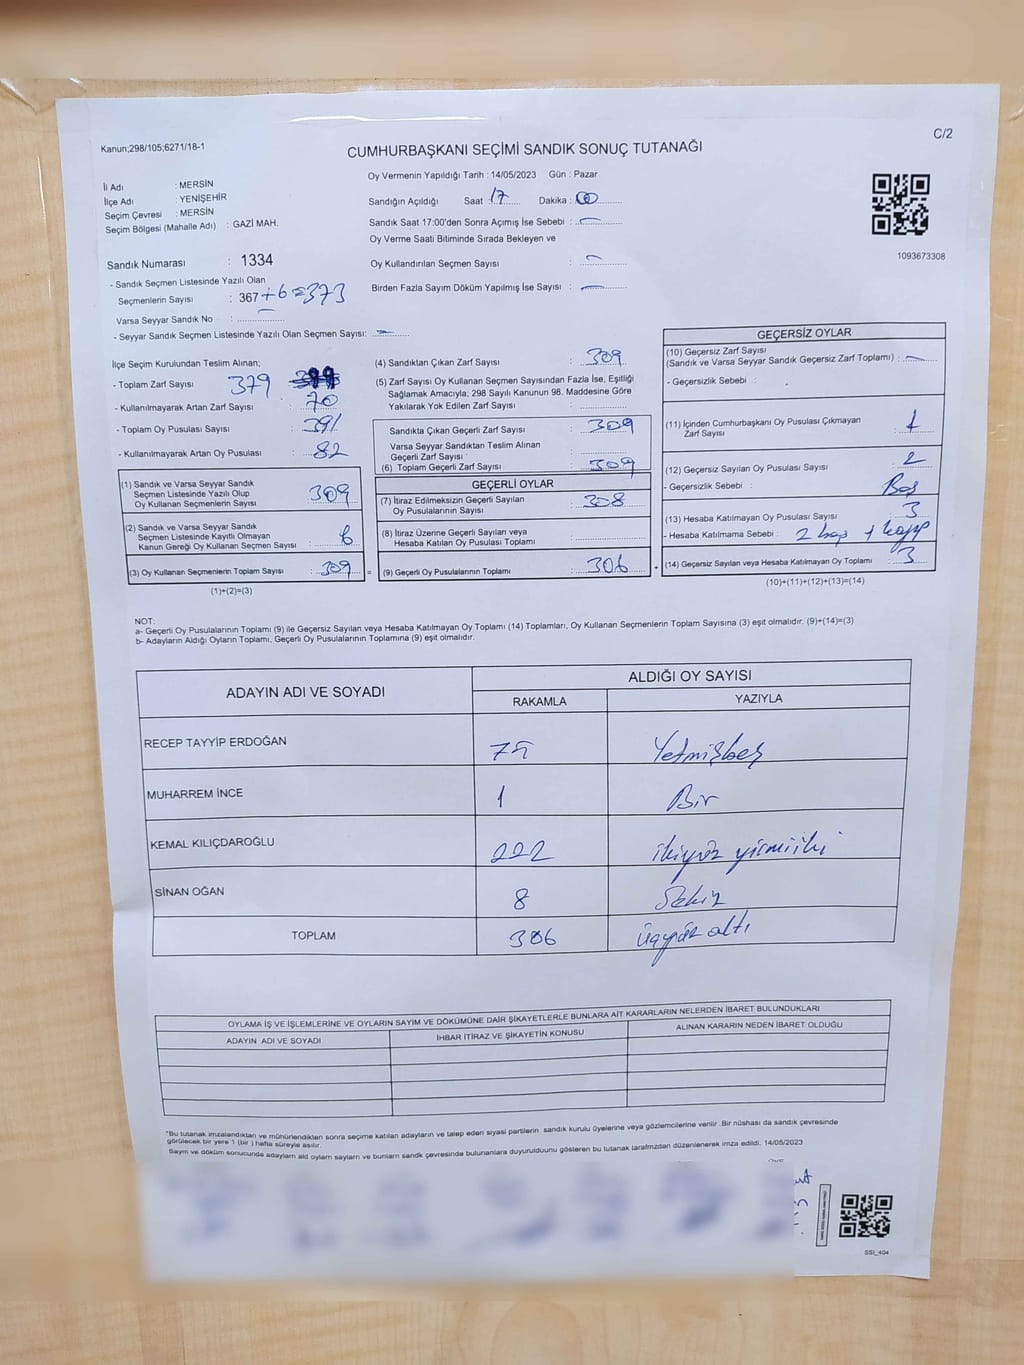 Kanun;298/105;6271/18-1
C/2
CUMHURBAŞKANI SEÇİMİ SANDIK SONUÇ TUTANAĞI
Oy Vermenin Yapıldığı Tarih : 14/05/2023 Gün : Pazar
İl Adı : MERSİN
İlçe Adı : YENİŞEHİR
Seçim Çevresi : MERSİN
Seçim Bölgesi (Mahalle Adı) : GAZİ MAH.
Sandığın Açıldığı Saat : 17 Dakika : 00
Sandık Saat 17:00'den Sonra Açımış İse Sebebi : —
Oy Verme Saati Bitiminde Sırada Bekleyen ve
Oy Kullandırılan Seçmen Sayısı : —
Birden Fazla Sayım Döküm Yapılmış İse Sayısı : —
1093673308
Sandık Numarası : 1334
- Sandık Seçmen Listesinde Yazılı Olan
Seçmenlerin Sayısı : 367 +6=373
Varsa Seyyar Sandık No : —
- Seyyar Sandık Seçmen Listesinde Yazılı Olan Seçmen Sayısı: —
İlçe Seçim Kurulundan Teslim Alınan;
- Toplam Zarf Sayısı : 379
- Kullanılmayarak Artan Zarf Sayısı : 70
- Toplam Oy Pusulası Sayısı : 391
- Kullanılmayarak Artan Oy Pusulası : 82
(1) Sandık ve Varsa Seyyar Sandık
Seçmen Listesinde Yazılı Olup
Oy Kullanan Seçmenlerin Sayısı : 309
(2) Sandık ve Varsa Seyyar Sandık
Seçmen Listesinde Kayıtlı Olmayan
Kanun Gereği Oy Kullanan Seçmen Sayısı : 6
(3) Oy Kullanan Seçmenlerin Toplam Sayısı : 309 =
(1)+(2)=(3)
(4) Sandıktan Çıkan Zarf Sayısı : 309
(5) Zarf Sayısı Oy Kullanan Seçmen Sayısından Fazla İse, Eşitliği
Sağlamak Amacıyla; 298 Sayılı Kanunun 98. Maddesine Göre
Yakılarak Yok Edilen Zarf Sayısı :
Sandıkta Çıkan Geçerli Zarf Sayısı : 309
Varsa Seyyar Sandıktan Teslim Alınan
Geçerli Zarf Sayısı :
(6) Toplam Geçerli Zarf Sayısı : 309
GEÇERLİ OYLAR
(7) İtiraz Edilmeksizin Geçerli Sayılan
Oy Pusulalarının Sayısı : 308
(8) İtiraz Üzerine Geçerli Sayılan veya
Hesaba Katılan Oy Pusulası Toplamı :
(9) Geçerli Oy Pusulalarının Toplamı : 306 +
GEÇERSİZ OYLAR
(10) Geçersiz Zarf Sayısı
(Sandık ve Varsa Seyyar Sandık Geçersiz Zarf Toplamı) : —
- Geçersizlik Sebebi :
(11) İçinden Cumhurbaşkanı Oy Pusulası Çıkmayan
Zarf Sayısı : 1
(12) Geçersiz Sayılan Oy Pusulası Sayısı : 2
- Geçersizlik Sebebi : Boş
(13) Hesaba Katılmayan Oy Pusulası Sayısı : 3
- Hesaba Katılmama Sebebi : 2 boş +
(14) Geçersiz Sayılan veya Hesaba Katılmayan Oy Toplamı : 3
(10)+(11)+(12)+(13)=(14)
NOT:
a- Geçerli Oy Pusulalarının Toplamı (9) ile Geçersiz Sayılan veya Hesaba Katılmayan Oy Toplamı (14) Toplamları, Oy Kullanan Seçmenlerin Toplam Sayısına (3) eşit olmalıdır. (9)+(14)=(3)
b- Adayların Aldığı Oyların Toplamı, Geçerli Oy Pusulalarının Toplamına (9) eşit olmalıdır.
ADAYIN ADI VE SOYADI
ALDIĞI OY SAYISI
RAKAMLA YAZIYLA
RECEP TAYYİP ERDOĞAN 75 Yetmişbeş
MUHARREM İNCE 1 Bir
KEMAL KILIÇDAROĞLU 222 ikiyüz yirmiiki
SİNAN OĞAN 8 Sekiz
TOPLAM 306 üçyüz altı
OYLAMA İŞ VE İŞLEMLERİNE VE OYLARIN SAYIM VE DÖKÜMÜNE DAİR ŞİKAYETLERLE BUNLARA AİT KARARLARIN NELERDEN İBARET BULUNDUKLARI
ADAYIN ADI VE SOYADI İHBAR İTİRAZ VE ŞİKAYETİN KONUSU ALINAN KARARIN NEDEN İBARET OLDUĞU
"Bu tutanak imzalandıktan ve mühürlendikten sonra seçime katılan adayların ve talep eden siyasi partilerin sandık kurulu üyelerine veya gözlemcilerine verilir .Bir nüshası da sandık çevresinde
görülecek bir yere 1 (bir ) hafta süreyle asılır.
Sayım ve döküm sonucunda adayların ald oyların sayıları ve bunların sandık çevresinde bulunanlara duyurulduunu gösteren bu tutanak tarafmızdan düzenlenerek imza edildi. 14/05/2023
SSI_404